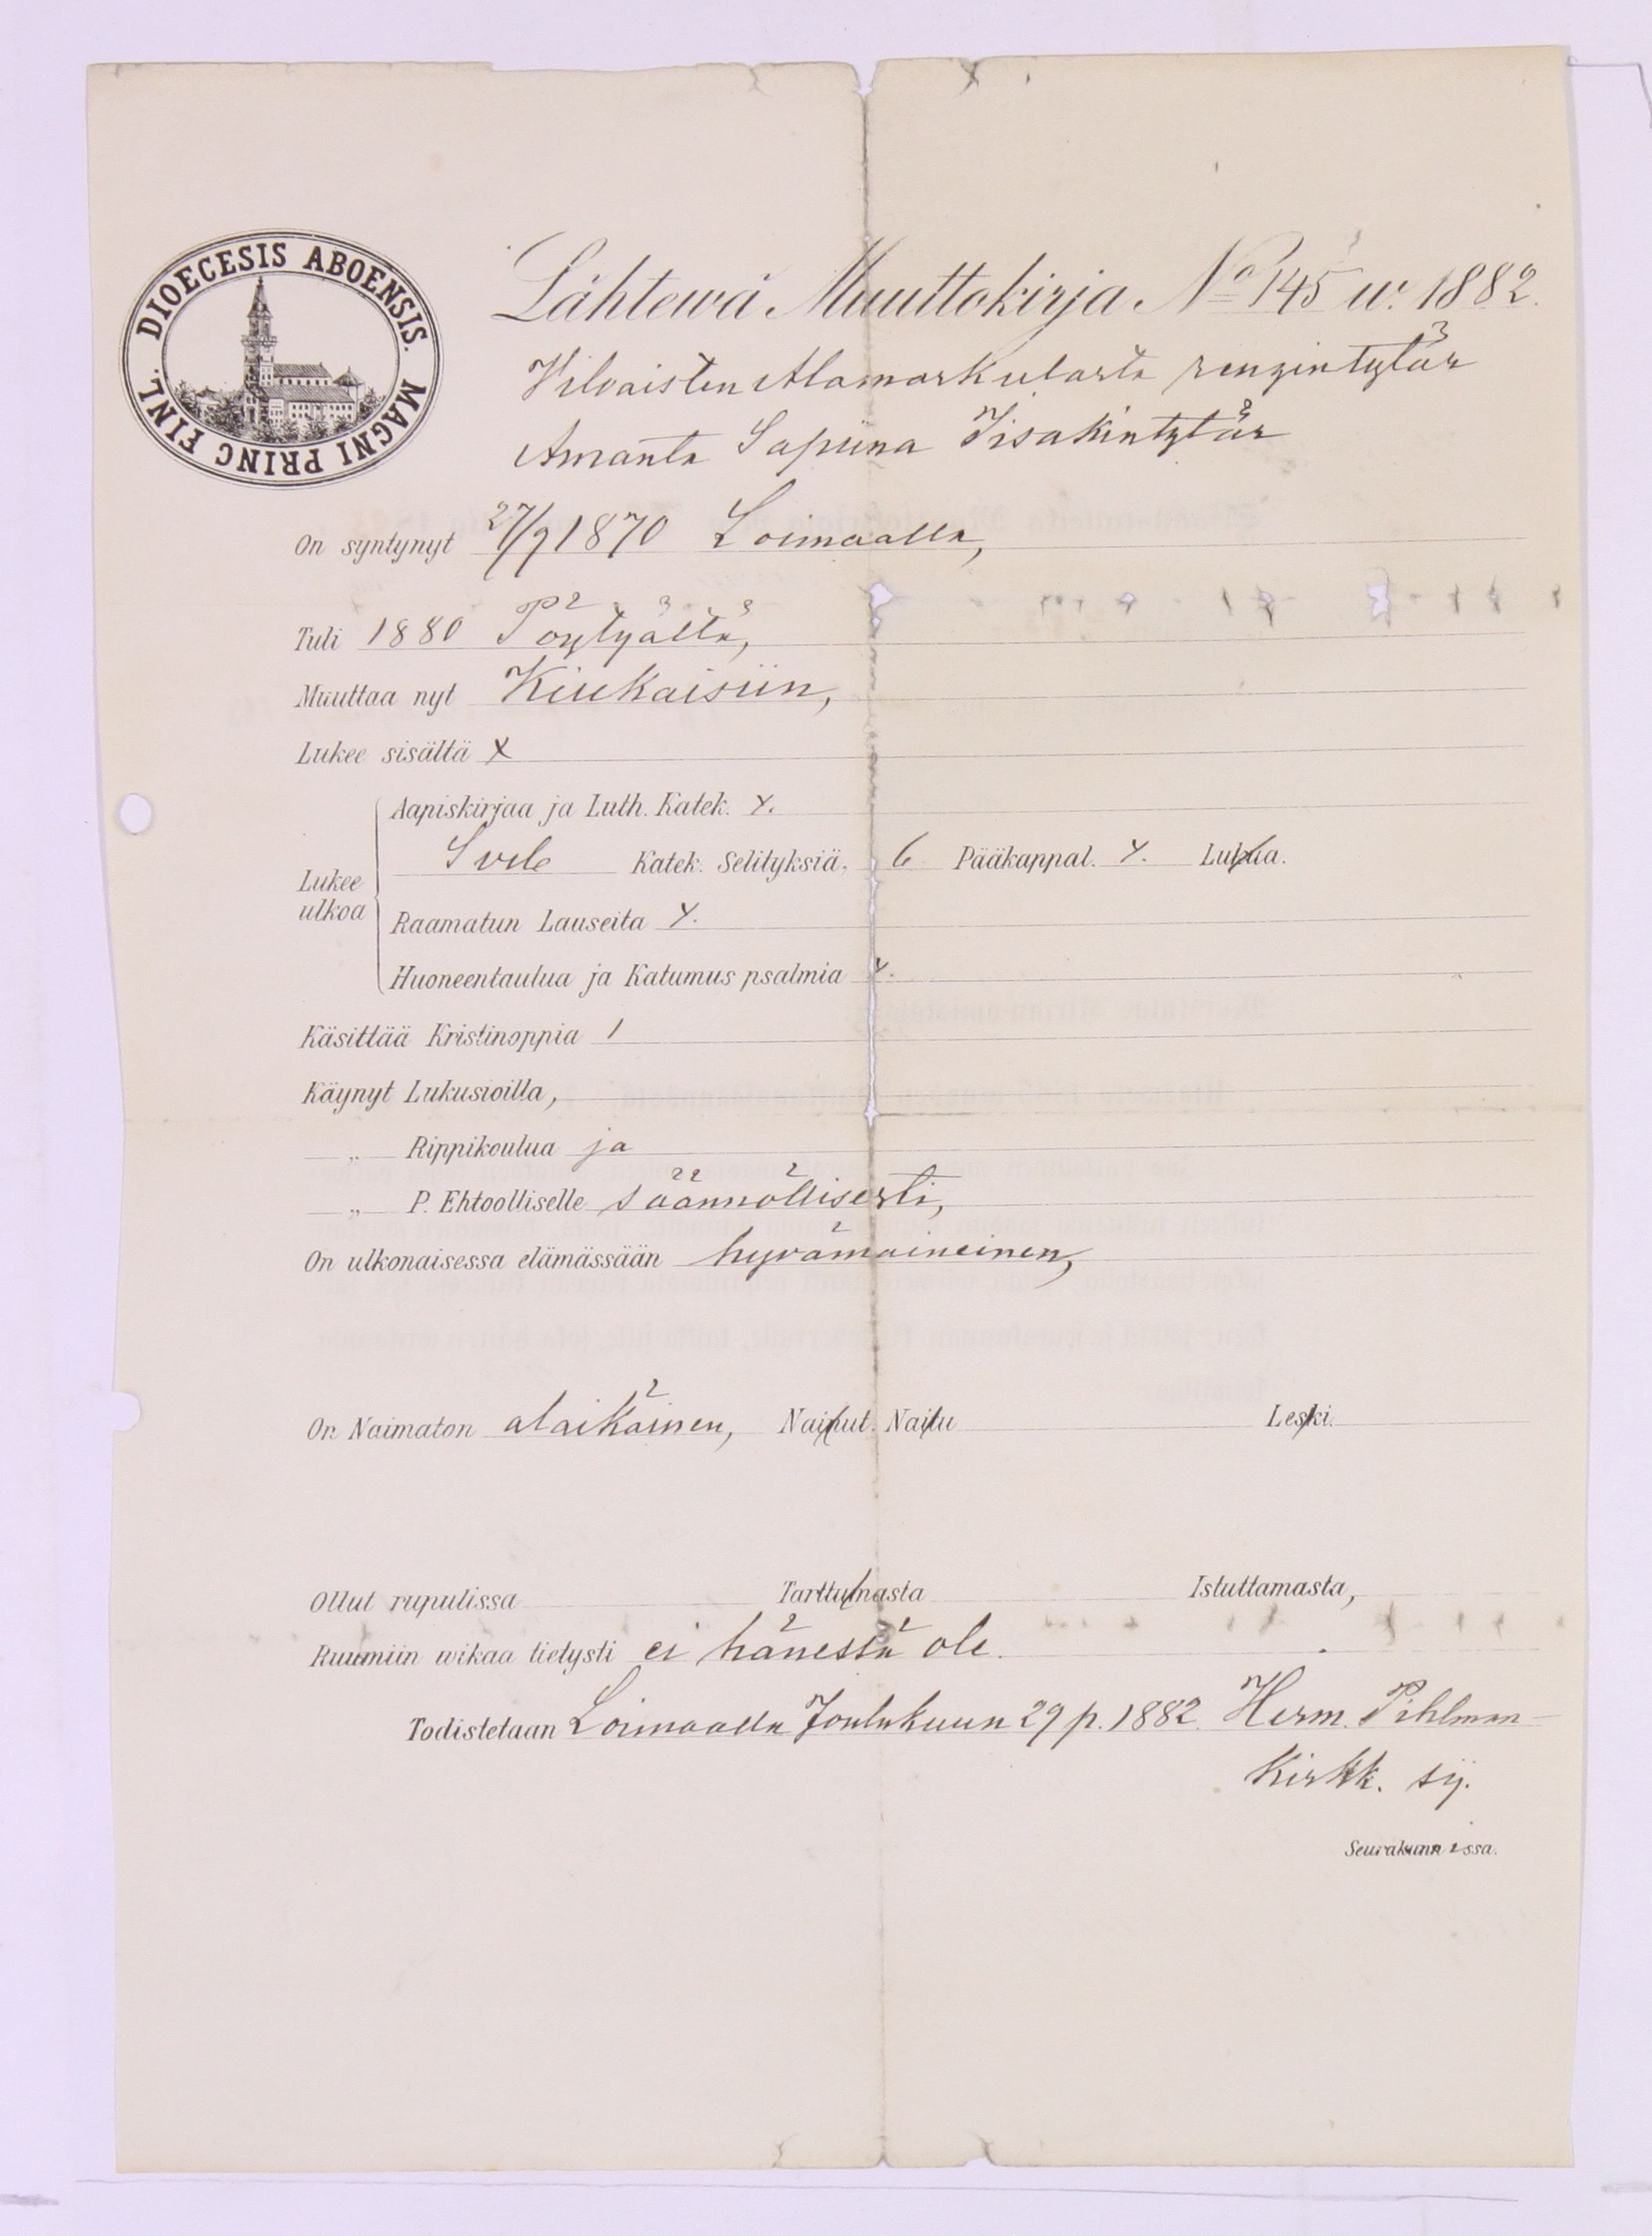 DIOECESIS ABOENSIS. MAGNI PRINC FINL.
Lähtewä Muuttokirja No 145 w. 1882.
Vilvaisten Alamaskulasta rengintytär
Amanta Sapiina Iisakintytär
On syntynyt 27/9 1870 Loimaalla,
Tuli 1880 Pöytyältä,
Muuttaa nyt Kiukaisiin,
Lukee sisältä x
Lukee ulkoa
Aapiskirjaa ja Luth. Katek. x.
Sveb Katek. Selityksiä, 6 Pääkappal. x. Lukua.
Raamatun Lauseita x.
Huoneentaulua ja Katumus psalmia x.
Käsittää Kristinoppia 1
Käynyt Lukusioilla,
„ Rippikoulua ja
„ P. Ehtoolliselle säännöllisesti,
On ulkonaisessa elämässään hyvämaineinen,
On Naimaton alaikäinen, Nainut. Naitu Leski.
Ollut rupulissa Tarttumasta Istuttamasta,
Ruumiin wikaa tietysti ei hänessä ole.
Todistetaan Loimaalla Joulukuun 29 p. 1882. Herm. Pihlman
Kirkk. sij.
Seurakunnassa.